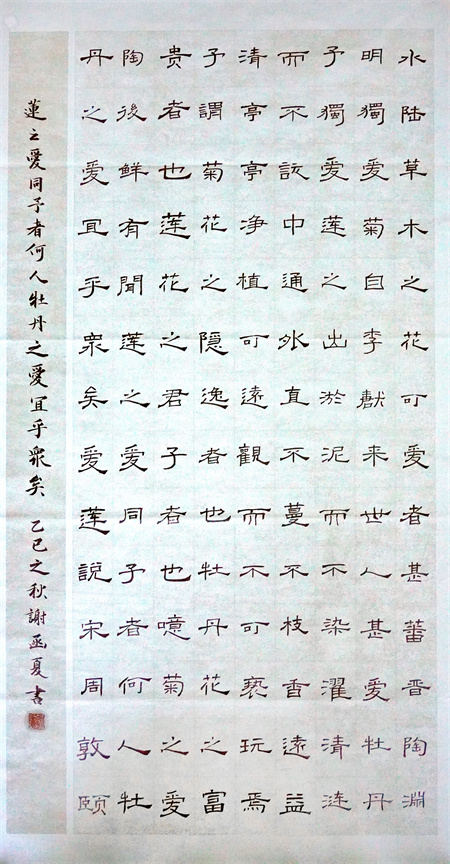 水陸草木之花可愛者甚蕃晋陶淵
明獨愛菊自李来世人甚愛牡丹
予獨愛蓮之出於泥而不染濯清漣
而不訞中通外直不蔓不枝香遠益
清亭亭净植可遠觀而不可褻玩焉
予謂菊花之隱逸者也牡丹花之富
貴者也蓮花之君子者也噫菊之愛
陶後鮮有聞蓮之愛同予者何人牡
丹之愛宜乎衆矣愛蓮說宋周敦頤
蓮之愛同予者何人牡丹之愛宜乎衆矣 乙巳之秋謝函夏書